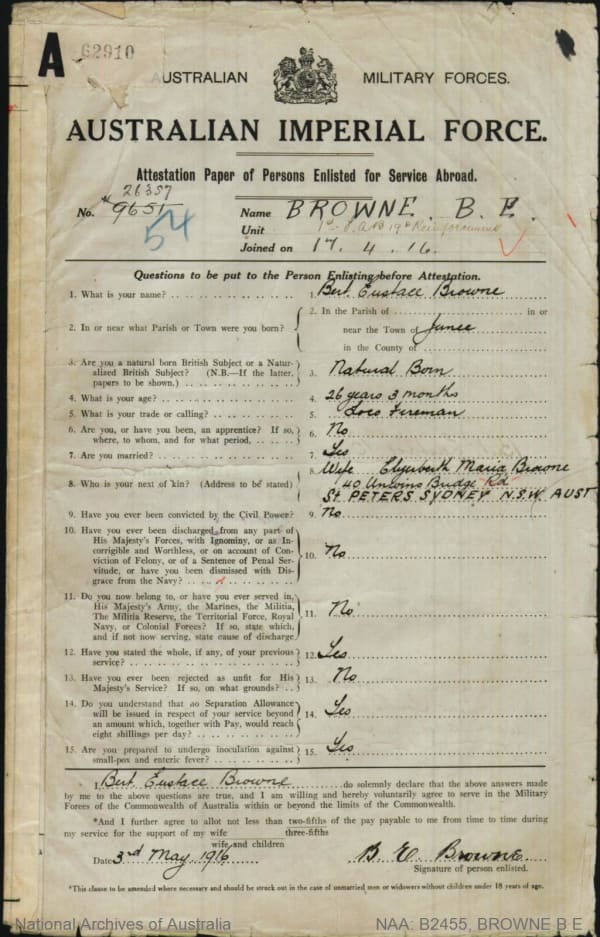 A
62910
AUSTRALIAN MILITARY FORCES.
AUSTRALIAN IMPERIAL FORCE.
Attestation Paper of Persons Enlisted for Service Abroad.
26357
No. 9651
54
Name BROWNE. B. E.
Unit 19th Reinforcements
Joined on 17. 4. 16.
Questions to be put to the Person Enlisting before Attestation.
1. What is your name? Bert Eustace Browne
2. In or near what Parish or Town were you born?
2. In the Parish of in or
near the Town of Junee
in the County of
3. Are you a natural born British Subject or a Natur-
alized British Subject? (N.B.—If the latter,
papers to be shown.)
3. Natural Born
4. What is your age? 4. 26 years 3 months
5. What is your trade or calling? 5. Loco Fireman
6. Are you, or have you been, an apprentice? If so,
where, to whom, and for what period,
6. No
7. Are you married? 7. Yes
8. Who is your next of kin? (Address to be stated)
8. Wife Elizabeth Maria Browne
40 Unwins Bridge Rd
ST. PETERS, SYDNEY N.S.W. AUST
9. Have you ever been convicted by the Civil Power? 9. No
10. Have you ever been discharged from any part of
His Majesty's Forces, with Ignominy, or as In-
corrigible and Worthless, or on account of Con-
viction of Felony, or of a Sentence of Penal Ser-
vitude, or have you been dismissed with Dis-
grace from the Navy?
10. No
11. Do you now belong to, or have you ever served in,
His Majesty's Army, the Marines, the Militia,
The Militia Reserve, the Territorial Force, Royal
Navy, or Colonial Forces? If so, state which,
and if not now serving, state cause of discharge
11. No
12. Have you stated the whole, if any, of your previous
service?
12. Yes
13. Have you ever been rejected as unfit for His
Majesty's Service? If so, on what grounds?
13. No
14. Do you understand that no Separation Allowance
will be issued in respect of your service beyond
an amount which, together with Pay, would reach
eight shillings per day?
14. Yes
15. Are you prepared to undergo inoculation against
small-pox and enteric fever?
15. Yes
I, Bert Eustace Browne do solemnly declare that the above answers made
by me to the above questions are true, and I am willing and hereby voluntarily agree to serve in the Military
Forces of the Commonwealth of Australia within or beyond the limits of the Commonwealth.
*And I further agree to allot not less than two-fifths of the pay payable to me from time to time during
three-fifths
my service for the support of my wife
wife and children
Date 3rd May 1916
B. E. Browne
Signature of person enlisted.
*This clause to be amended where necessary and should be struck out in the case of unmarried men or widowers without children under 18 years of age.
National Archives of Australia
NAA: B2455, BROWNE B E